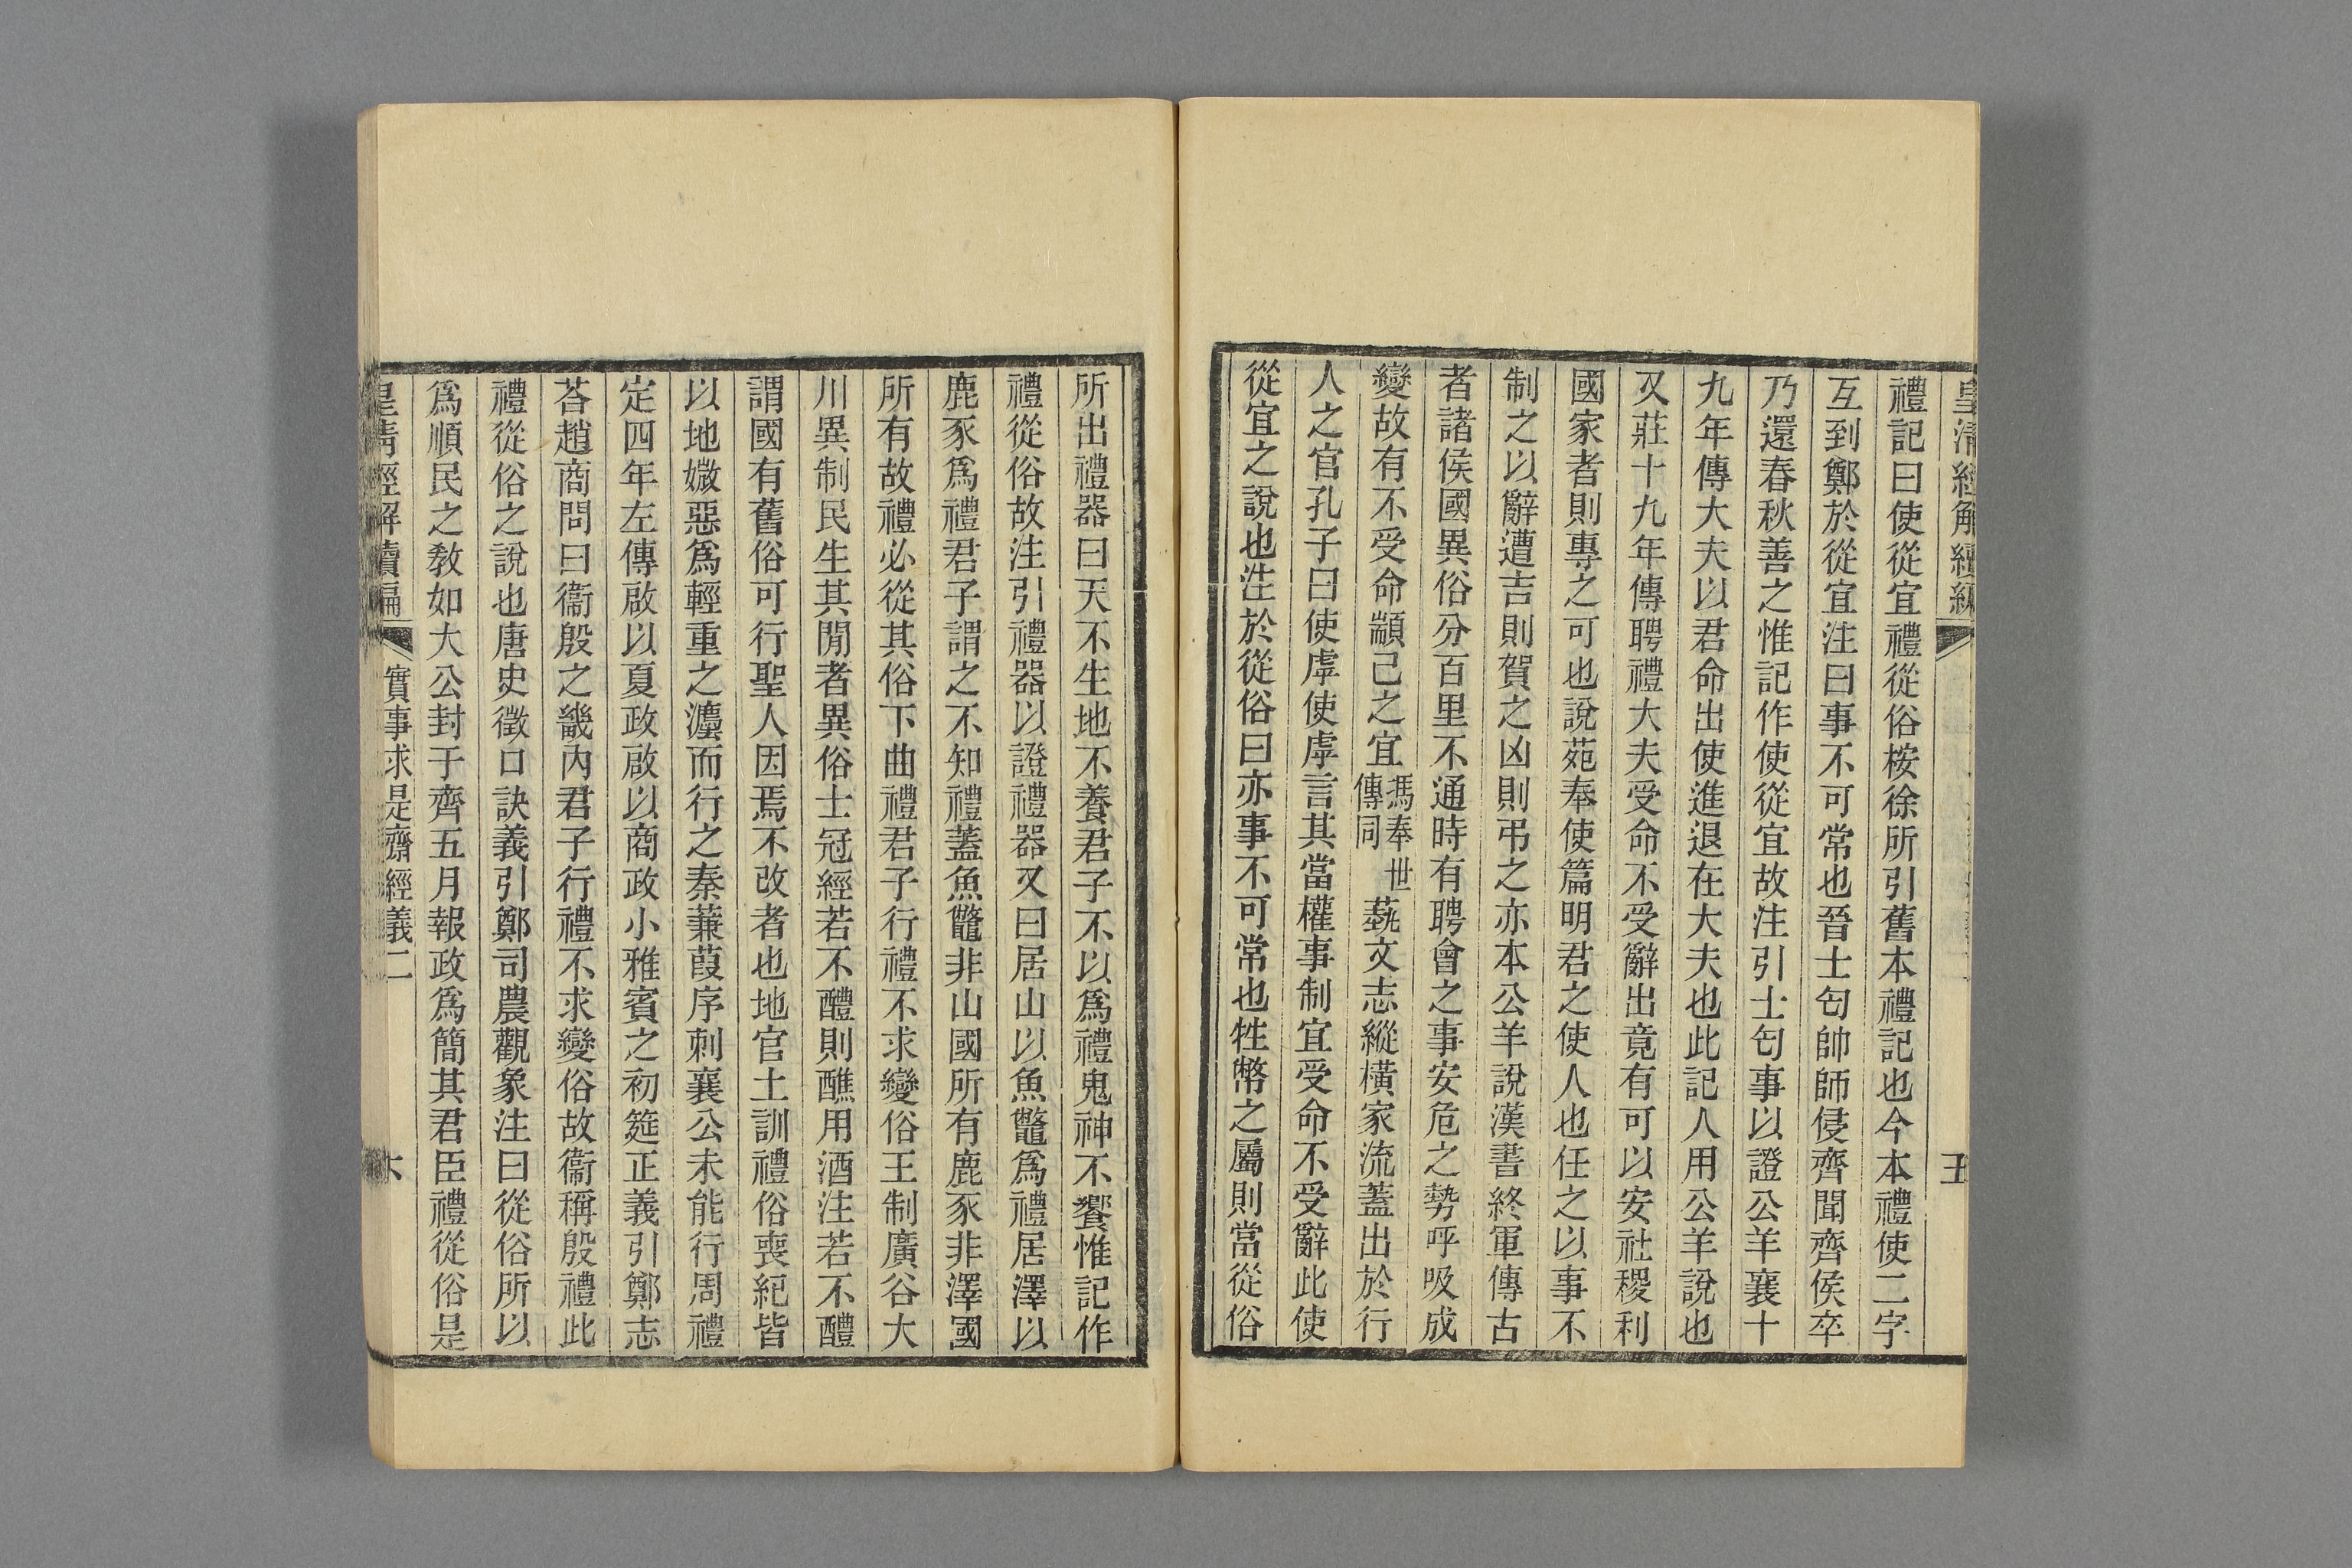 皇清經解續編
五
禮記曰使從宜禮從俗桉徐所引舊本禮記也今本禮使二字
互到鄭於從宜注曰事不可常也晉士匄帥師侵齊聞齊侯卒
乃還春秋善之惟記作使從宜故注引士匄事以證公羊襄十
九年傳大夫以君命出使進退在大夫也此記人用公羊說也
又莊十九年傳聘禮大夫受命不受辭出竟有可以安社稷利
國家者則專之可也說苑奉使篇明君之使人也任之以事不
制之以辭遭吉則賀之凶則弔之亦本公羊說漢書終軍傳古
者諸侯國異俗分百里不通時有聘會之事安危之勢呼吸成
變故有不受命顓己之宜馮奉世傳同藝文志縱橫家流蓋出於行
人之官孔子曰使虖使虖言其當權事制宜受命不受辭此使
從宜之說也注於從俗曰亦事不可常也牲幣之屬則當從俗
所出禮器曰天不生地不養君子不以爲禮鬼神不饗惟記作
禮從俗故注引禮器以證禮器又曰居山以魚鼈爲禮居澤以
鹿豕爲禮君子謂之不知禮蓋魚鼈非山國所有鹿豕非澤國
所有故禮必從其俗下曲禮君子行禮不求變俗王制廣谷大
川異制民生其閒者異俗士冠經若不醴則醮用酒注若不醴
謂國有舊俗可行聖人因焉不改者也地官土訓禮俗喪紀皆
以地媺惡爲輕重之灋而行之秦蒹葭序刺襄公未能行周禮
定四年左傳啟以夏政啟以商政小雅賓之初筵正義引鄭志
荅趙商問曰衞殷之畿內君子行禮不求變俗故衞稱殷禮此
禮從俗之說也唐史徵口訣義引鄭司農觀象注曰從俗所以
爲順民之敎如大公封于齊五月報政爲簡其君臣禮從俗是
皇清經解續編
實事求是齋經義二
六